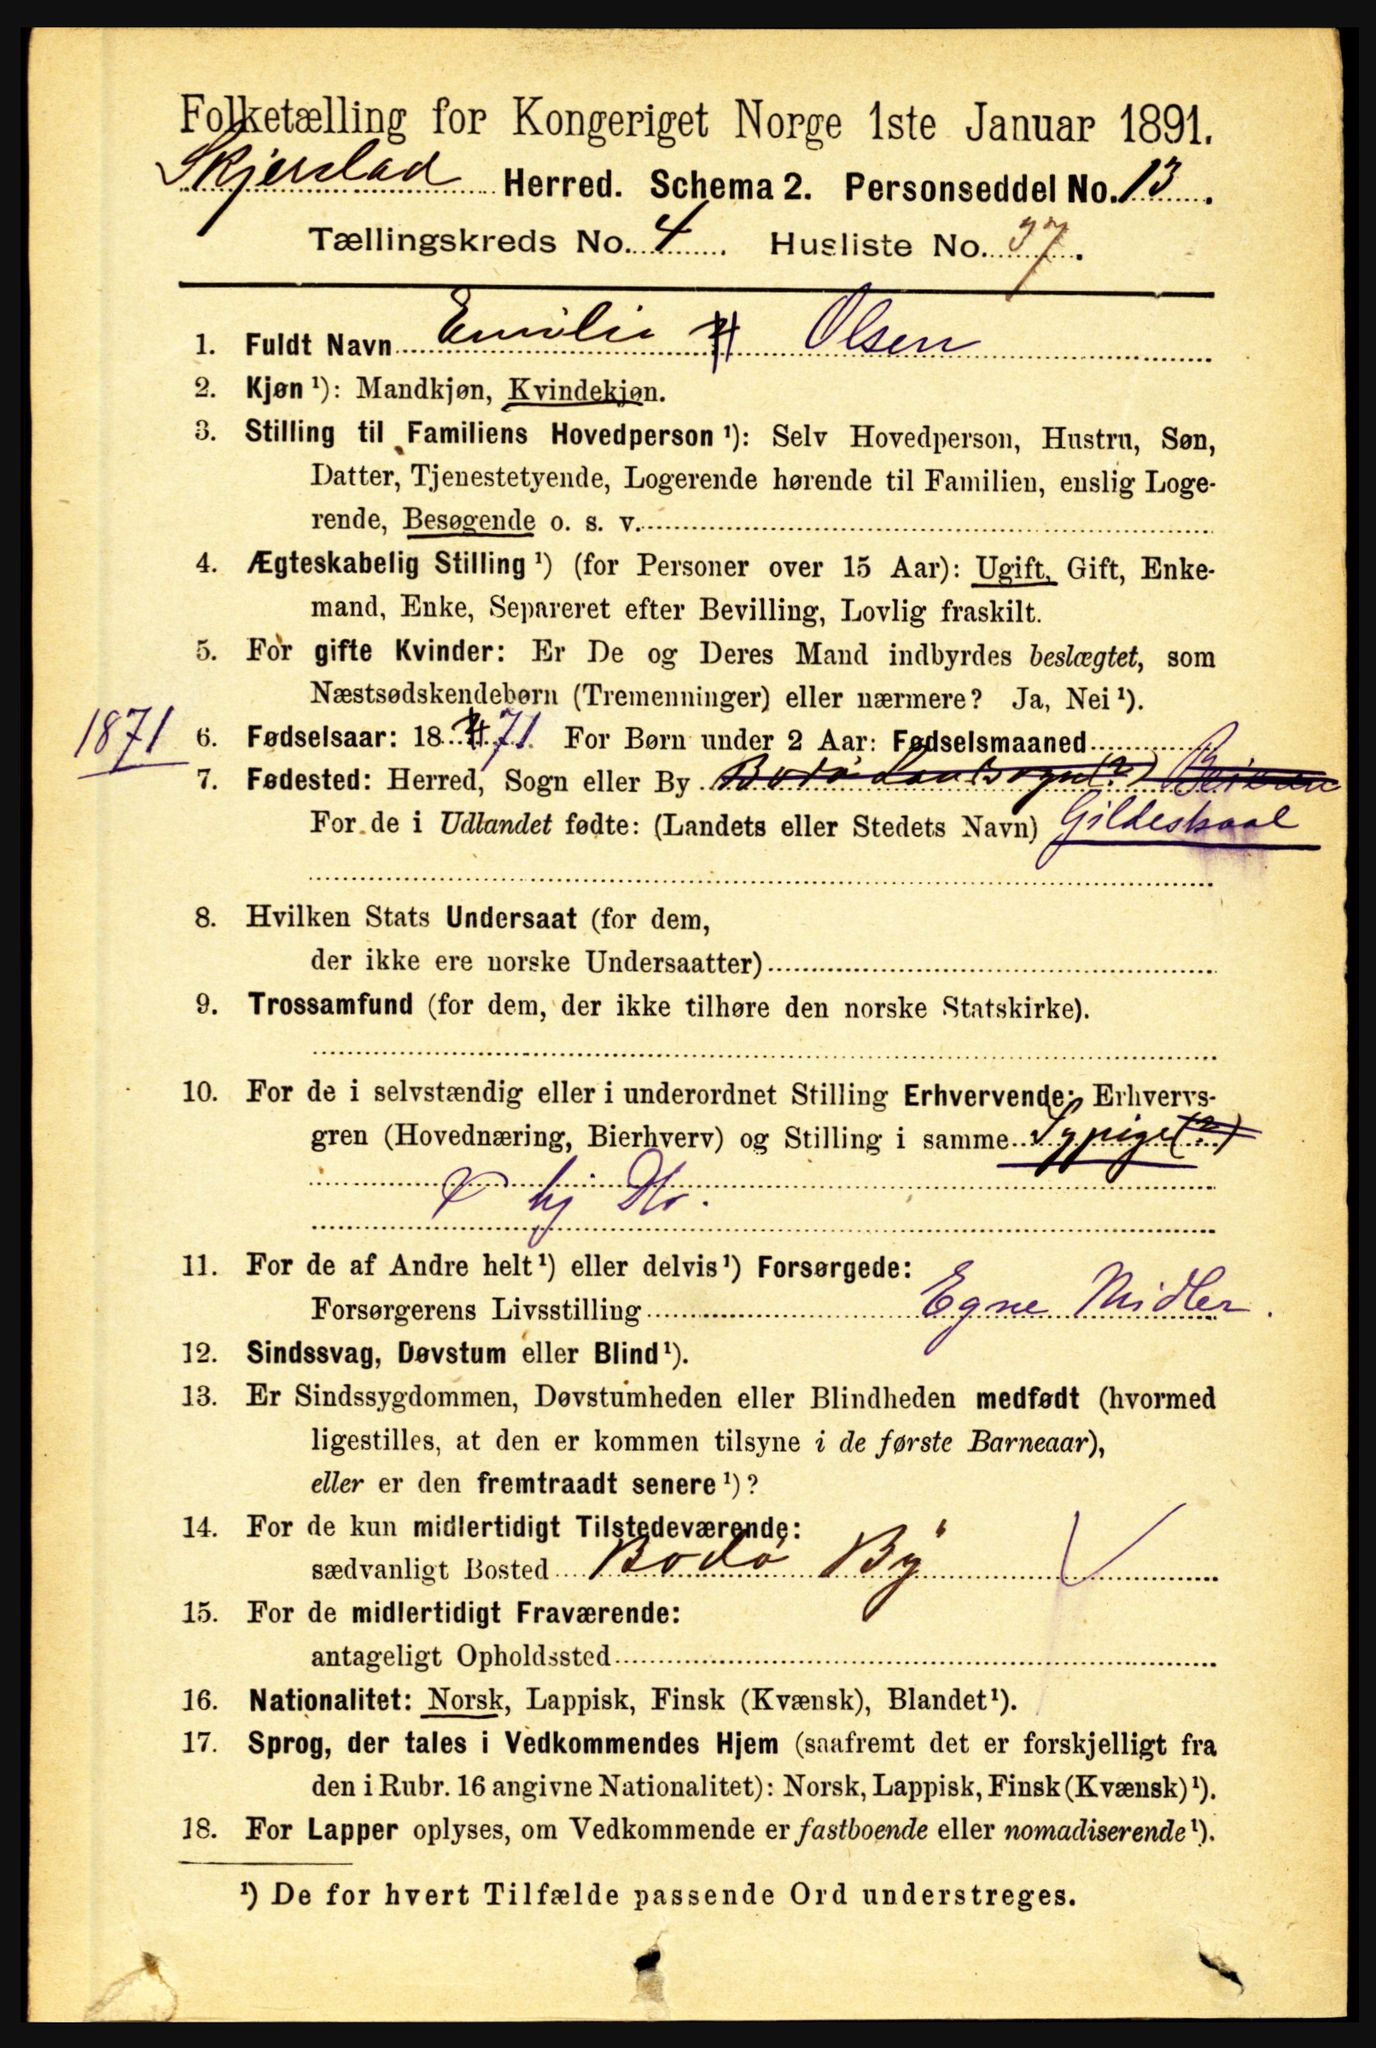 Folketælling for Kongeriget Norge 1ste Januar 1891.
Skjerstad Herred. Schema 2. Personseddel No. 13.
Tællingskreds No. 4. Husliste No. 37.
1. Fuldt Navn Emilie Olsen
2. Kjøn ¹): Mandkjøn, Kvindekjøn.
3. Stilling til Familiens Hovedperson ¹): Selv Hovedperson, Hustru, Søn,
Datter, Tjenestetyende, Logerende hørende til Familien, enslig Loge-
rende, Besøgende o. s. v.
4. Ægteskabelig Stilling ¹) (for Personer over 15 Aar): Ugift, Gift, Enke-
mand, Enke, Separeret efter Bevilling, Lovlig fraskilt.
5. For gifte Kvinder: Er De og Deres Mand indbyrdes beslægtet, som
Næstsødskendebørn (Tremenninger) eller nærmere? Ja, Nei ¹).
1871 6. Fødselsaar: 18 71. For Børn under 2 Aar: Fødselsmaaned
7. Fødested: Herred, Sogn eller By Bodø Landsogn (?) Beieren
For de i Udlandet fødte: (Landets eller Stedets Navn) Gildeskaal
8. Hvilken Stats Undersaat (for dem,
der ikke ere norske Undersaatter)
9. Trossamfund (for dem, der ikke tilhøre den norske Statskirke).
10. For de i selvstændig eller i underordnet Stilling Erhvervende: Erhvervs-
gren (Hovednæring, Bierhverv) og Stilling i samme Sypige (?)
hj
11. For de af Andre helt ¹) eller delvis ¹) Forsørgede:
Forsørgerens Livsstilling Egne Midler.
12. Sindssvag, Døvstum eller Blind ¹).
13. Er Sindssygdommen, Døvstumheden eller Blindheden medfødt (hvormed
ligestilles, at den er kommen tilsyne i de første Barneaar),
eller er den fremtraadt senere ¹)?
14. For de kun midlertidigt Tilstedeværende:
sædvanligt Bosted Bodø By
15. For de midlertidigt Fraværende:
antageligt Opholdssted
16. Nationalitet: Norsk, Lappisk, Finsk (Kvænsk), Blandet ¹).
17. Sprog, der tales i Vedkommendes Hjem (saafremt det er forskjelligt fra
den i Rubr. 16 angivne Nationalitet): Norsk, Lappisk, Finsk (Kvænsk) ¹).
18. For Lapper oplyses, om Vedkommende er fastboende eller nomadiserende ¹).
¹) De for hvert Tilfælde passende Ord understreges.